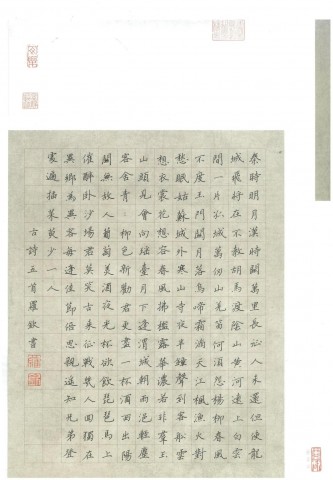 秦時明月漢時關萬里長征人未還但使龍
城飛將在不教胡馬度陰山黃河遠上白雲
間一片孤城萬仞山羌笛何須怨楊柳春風
不度玉門關月落烏啼霜滿天江楓漁火對
愁眠姑蘇城外寒山寺夜半鐘聲到客船雲
想衣裳花想容春風拂檻露華濃若非羣玉
山頭見會向瑤臺月下逢渭城朝雨浥輕塵
客舍青:柳色新勸君更盡一杯酒西出陽
關無故人葡萄美酒夜光杯欲飲琵琶馬上
催醉臥沙場君莫笑古來征戰幾人回獨在
異鄉為異客每逢佳節倍思親遙知兄弟登
處遍插茱萸少一人
古詩五首羅欽書